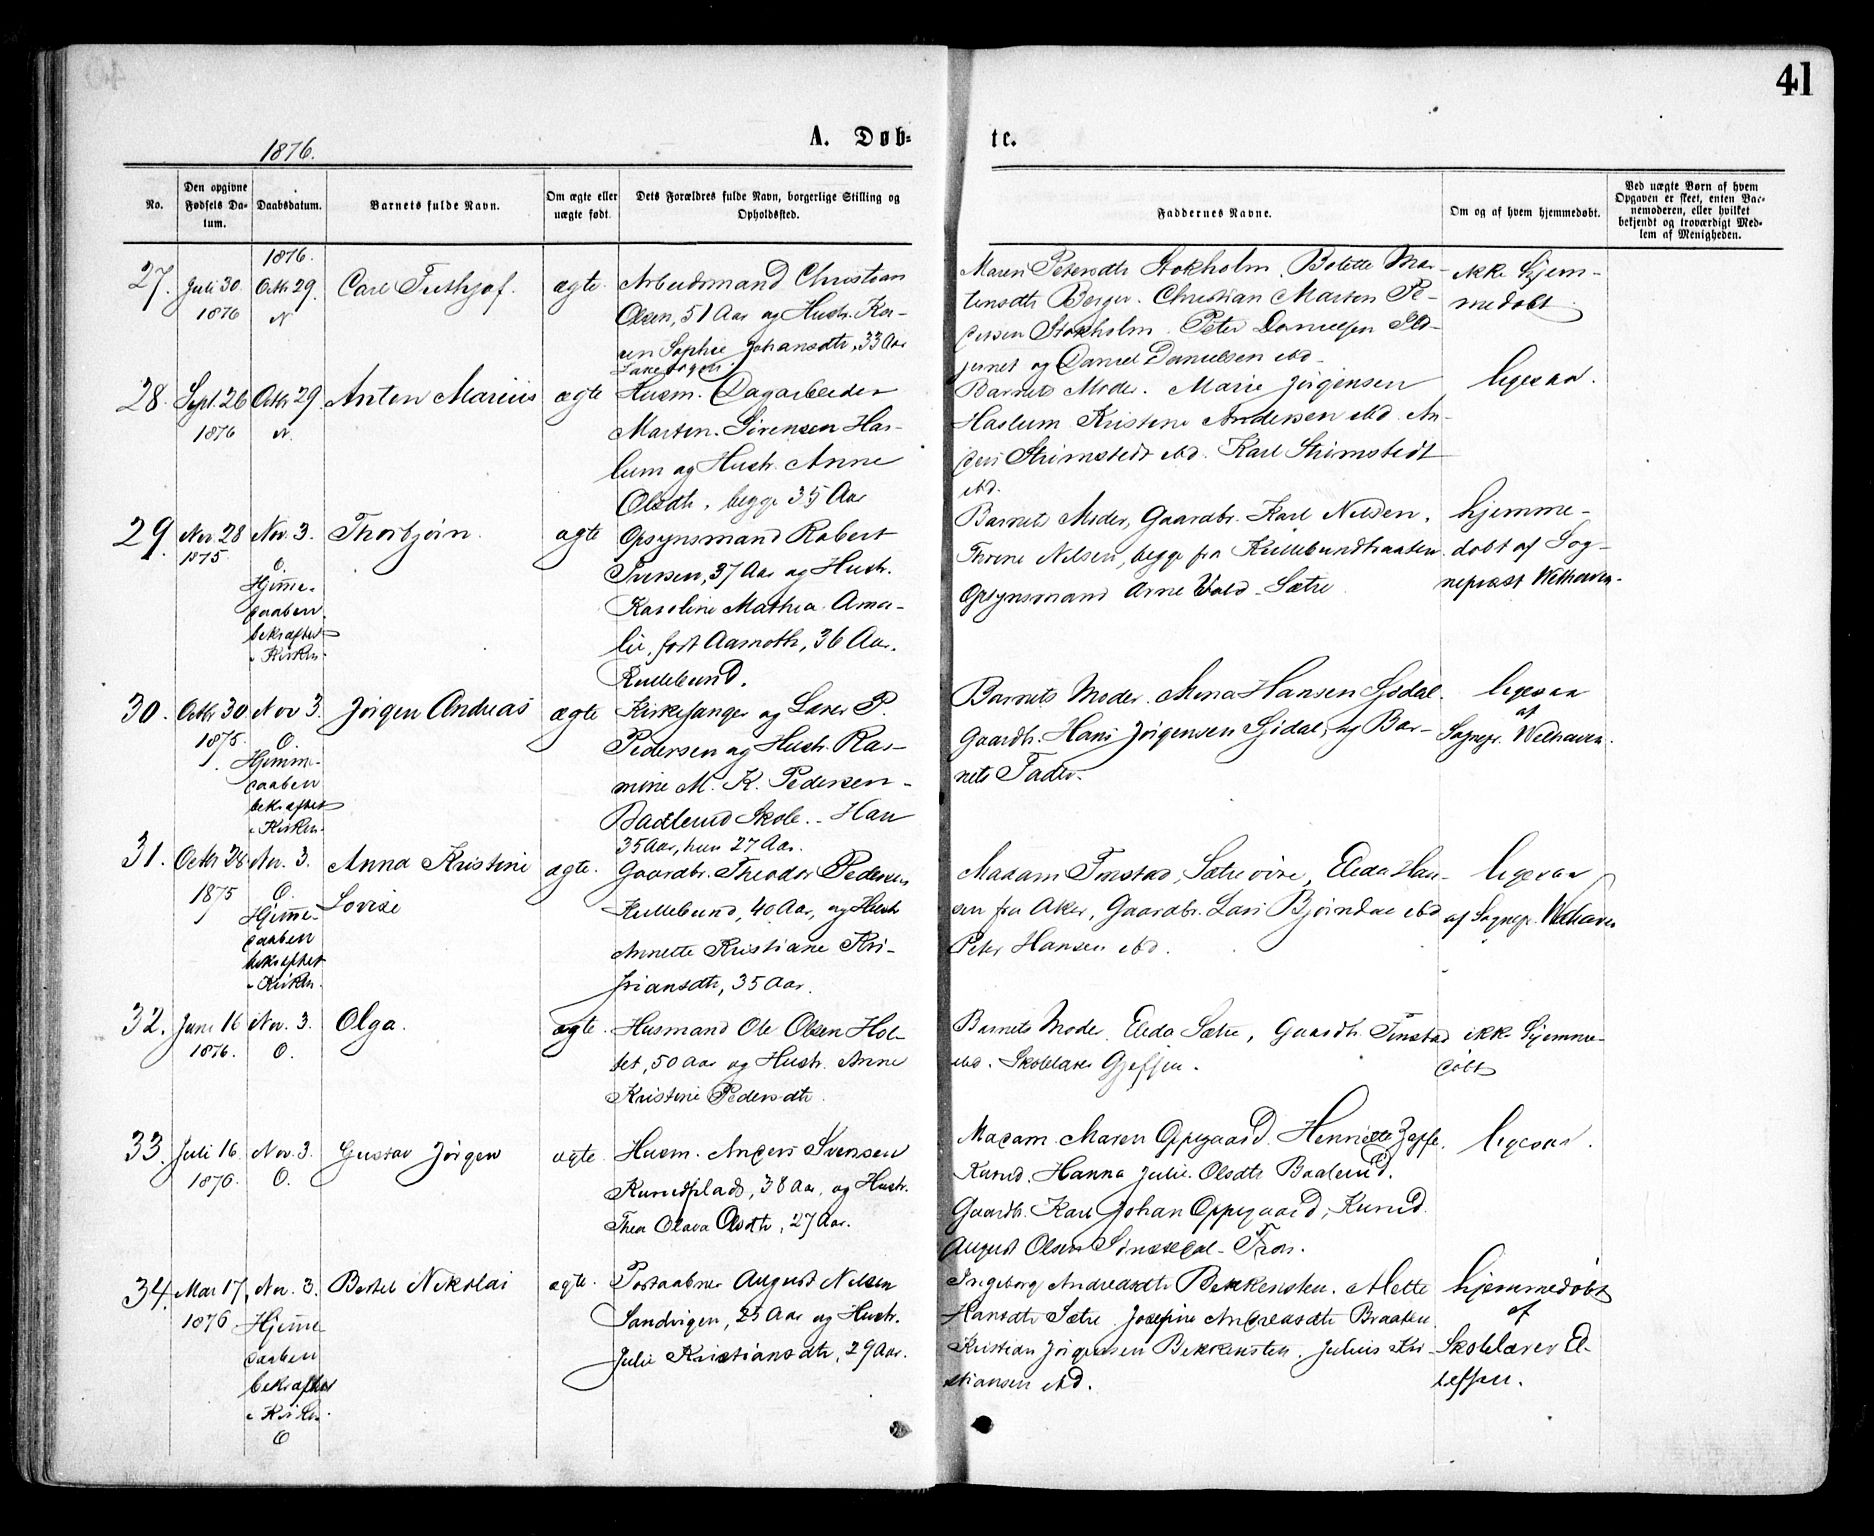 41
1876.
A. Døb=
te.
No.
Den opgivne Fødsels Da-tum.
Daabsdatum.
Barnets fulde Navn.
Om ægte eller uægte født.
Dets Forældres fulde Navn, borgerlige Stilling og Opholdssted.
Faddernes Navne.
Om og af hvem hjemmedøbt.
Ved uægte Børn af hvem Opgaven er skeet, enten Bar-nemoderen, eller hvilket bekjendt og troværdigt Med-lem af Menigheden.
1876.
27.
Juli 30
1876
Octr 29.
N
Carl Frithjof.
ægte.
Arbeidsmand Christian
Olsen, 51 Aar og Hustr. Ka-
ren Sophie Johansdtr, 33 Aar
Maren Petersdtr Stokholm. Bolette Mar-
tensdtr Berger. Christian Marten Pe-
dersen Stokholm. Peter Danielsen
og Daniel Danielsen ibd.
ikke hjem-
medøbt
28.
Sept. 26
1876
Octr 29.
N.
Anton Marius
ægte
Husm. Dagarbeider
Marten Sørensen Has-
lum og Hustr. Anne
Olsdtr. begge 35 Aar
Barnets Moder. Marie Jørgensen
Haslum Kristine Andersen ibd. An-
ders Strømstedt ibd. Karl Strømstedt
ibd.
ligesaa.
29.
Nov. 28
1875
Nov. 3.
O.
Hjemme-
daaben
bekræftet
i Kirken.
Thorbjørn.
ægte
Opsynsmand Robert
Iversen, 37 Aar og Hustr.
Karoline Mathea Ama-
lie, født Aamoth, 36 Aar.
Kullebund.
Barnets Moder, Gaardbr. Karl Nilsen.
Thrine Nilsen, begge fra Kullebundbraaten.
Opsynsmand Arne Vold Sætre
hjemme-
døbt af Sog-
nepræst Welhaven.
30.
Octr 30
1875.
Nov 3.
O.
Hjemme-
daaben
bekræftet
i Kirken.
Jørgen Andreas
ægte
Kirkesanger og Lærer P.
Pedersen og Hustr. Ras-
mine M. K. Pedersen -
Baalerud Skole. - Han
35 Aar, hun 27 Aar.
Barnets Moder. Mina Hansen Gjødal.
Gaardbr. Hans Jørgensen Gjødal, og Bar-
nets Fader.
ligesaa
af
Sognepr. Welhaven.
31.
Octr 28
1875
Nov. 3.
O.
Hjemme-
daaben
bekræftet
i Kirken.
Anna Kristine
Lovise
ægte.
Gaardbr. Theodor Pedersen
Kullebund, 40 Aar, og Hustr
Annette Kristiane Kri-
stiansdtr, 35 Aar.
Madam Finstad, Sætre øvre, Elida Han-
sen fra Aker, Gaardbr. Lars Bjørndal ibd
Peter Hansen ibd.
ligesaa
af Sognepr. Welhaven
32.
Juni 16
1876.
Nov. 3.
O.
Olga.
ægte.
Husmand Ole Olsen Hol-
tet, 50 Aar og Hustr. Anne
Kristine Pedersdtr.
Barnets Moder. Elida Sætre, Gaardbr. Finstad
ibd. Skolelærer
ikke hjemme-
døbt
33.
Juli 16
1876.
Nov. 3.
O.
Gustav Jørgen
ægte
Husm. Anders Svensen
Kurudplads, 38 Aar, og Hustr.
Thea Olava Olsdtr, 27 Aar.
Madam Maren Oppegaard. Henriette Zapfe.
Kurud. Hanna Julie Olsdtr Baalerud.
Gaardbr. Karl Johan Oppegaard, Kurud.
August Olsen
ligesaa.
34.
Mai 17.
1876
Nov. 3.
Hjemme-
daaben
bekræftet
i Kirken.
O
Bertel Nikolai
ægte.
Postaabner August Nilsen
Sandvigen, 25 Aar og Hustr.
Julie Kristiansdtr, 29 Aar.
Ingeborg Andreasdtr Bekkensten. Mette
Hansdtr Sætre. Josefine Andreasdtr Braaten
Kristian Jørgensen Bekkensten. Julius Kri-
stiansen ibd.
hjemmedøbt
af
Skolelærer El-
lefsen.